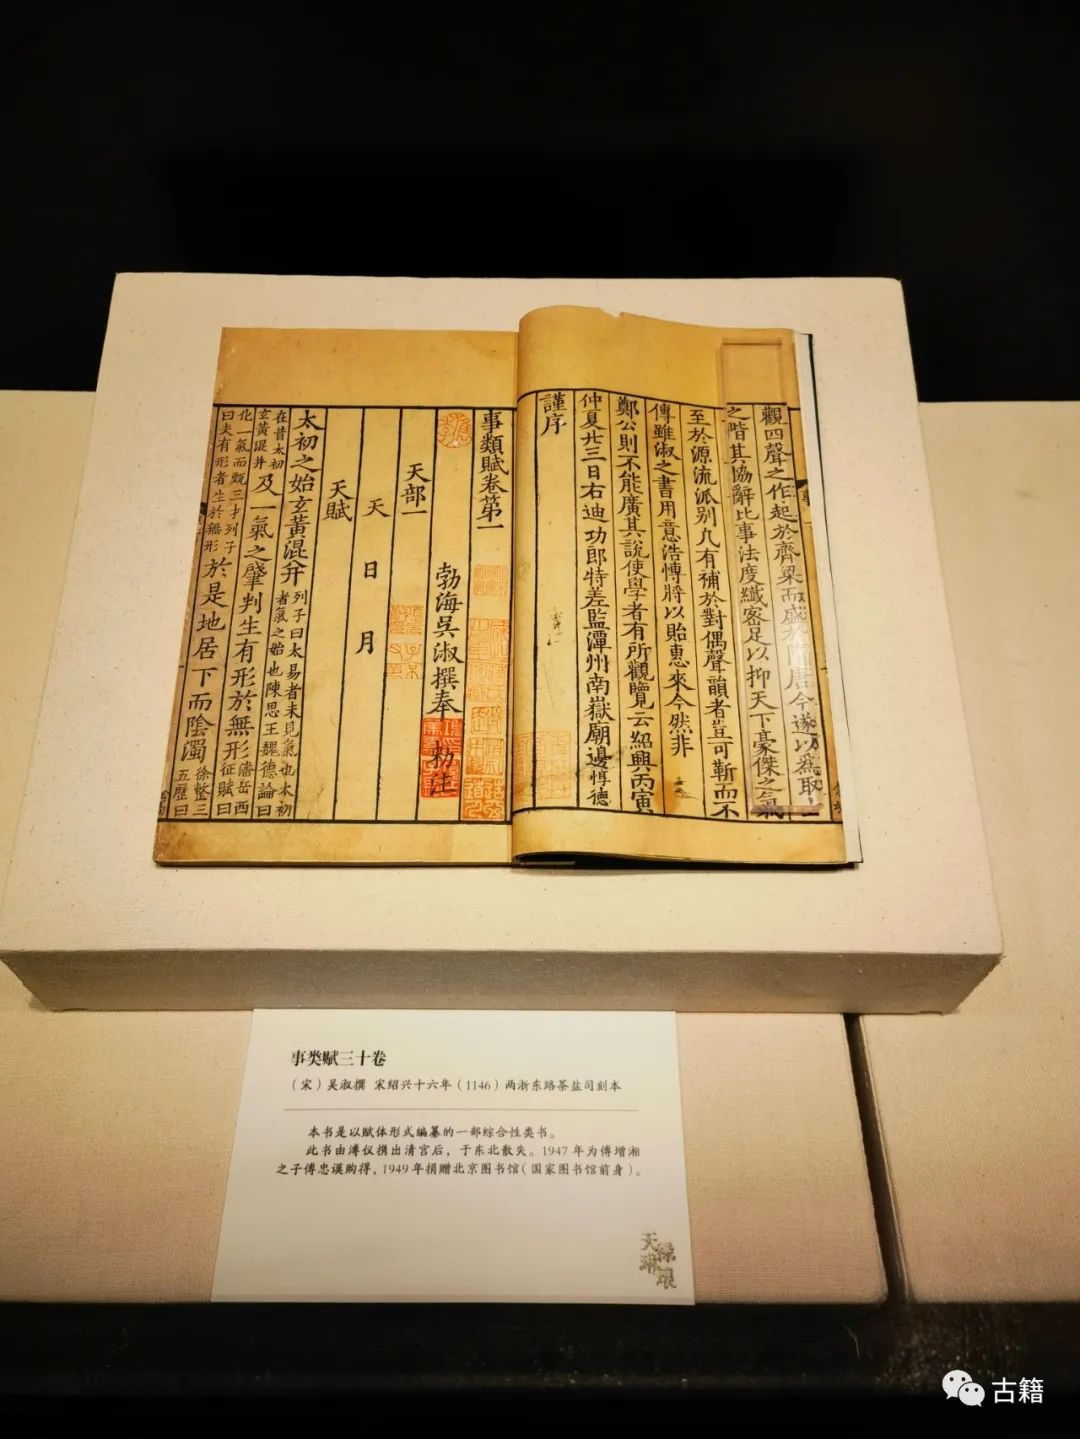 觀四聲之作起於齊梁而盛於隋唐今遂以為取士
之階其協辭比事法度纖密足以抑天下豪傑之氣
至於源流派别凢有補於對偶聲韻者豈可靳而不
傳雖淑之書用意浩博將以貽惠來今然非
鄭公則不能廣其說使學者有所觀覽云紹興丙寅
仲夏廿三日右迪功郎特差監潭州南嶽廟邊惇德
謹序
事類賦卷第一
勃海吳淑撰奉 勑注
天部一
天 日 月
天賦
太初之始玄黃混并列子曰太易者未見氣也太初
者氣之始也陳思王魏德論曰
在昔太初
玄黃混并及一氣之肇判生有形於無形潘岳西
征賦曰
化一氣而甄三才列子
曰夫有形者生於無形於是地居下而陰濁徐整三
五歷曰
事类赋三十卷
（宋）吴淑撰 宋绍兴十六年（1146）两浙东路茶盐司刻本
本书是以赋体形式编纂的一部综合性类书。
此书由溥仪携出清宫后，于东北散失。1947年为傅增湘
之子傅忠谟购得，1949年捐赠北京图书馆（国家图书馆前身）。
古籍